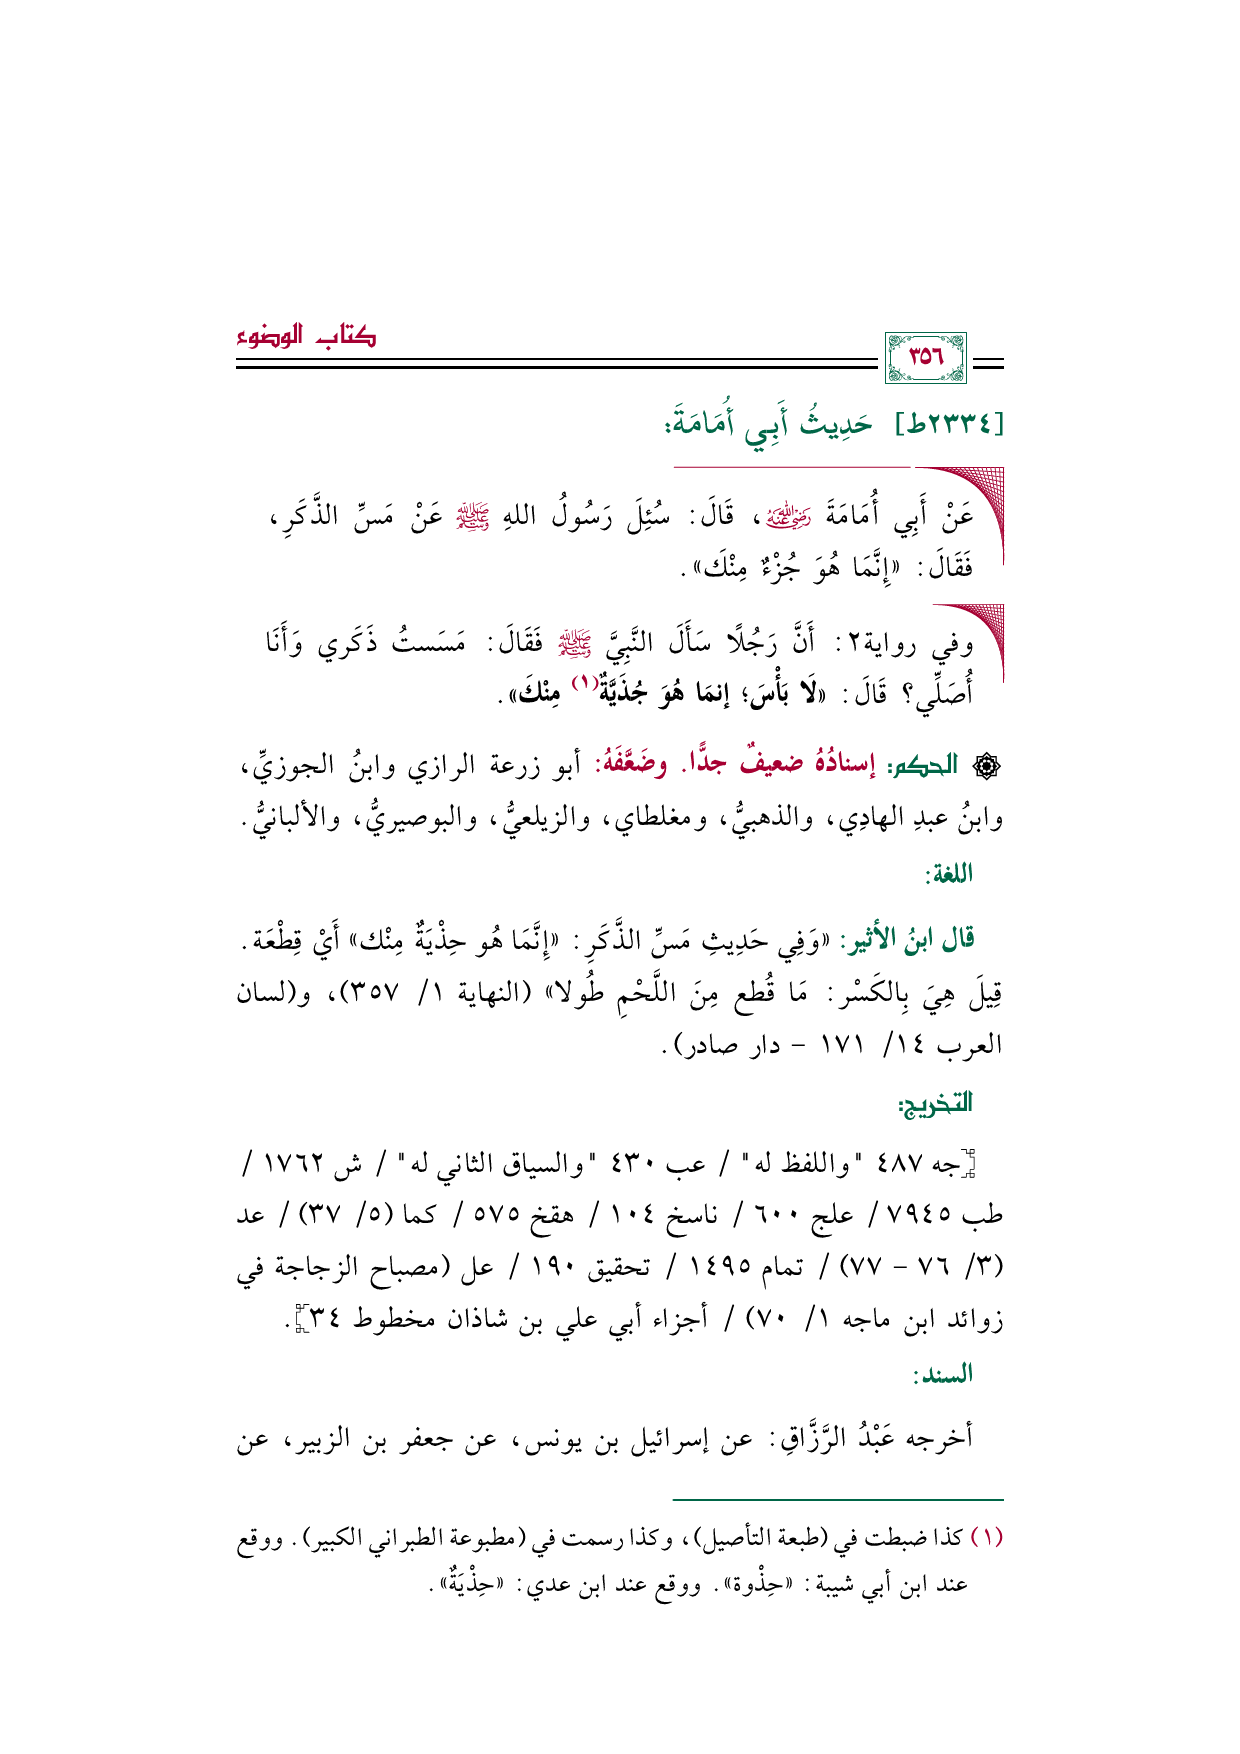 كتاب الوضوء
٣٥٦
[٢٣٣٤ط] حَدِيثُ أَبِي أُمَامَةَ:
عَنْ أَبِي أُمَامَةَ رضي الله عنه، قَالَ: سُئِلَ رَسُولُ اللهِ ﷺ عَنْ مَسِّ الذَّكَرِ،
فَقَالَ: «إِنَّمَا هُوَ جُزْءٌ مِنْكَ».
وفي رواية٢: أَنَّ رَجُلًا سَأَلَ النَّبِيَّ ﷺ فَقَالَ: مَسَستُ ذَكَري وَأَنَا
أُصَلِّي؟ قَالَ: «لَا بَأْسَ؛ إنمَا هُوَ جُذَيَّةٌ(١) مِنْكَ».
الحكم: إسنادُهُ ضعيفٌ جدًّا. وضَعَّفَهُ: أبو زرعة الرازي وابنُ الجوزيِّ،
وابنُ عبدِ الهادِي، والذهبيُّ، ومغلطاي، والزيلعيُّ، والبوصيريُّ، والألبانيُّ.
اللغة:
قال ابنُ الأثير: «وَفِي حَدِيثِ مَسِّ الذَّكَرِ: «إِنَّمَا هُو حِذْيَةٌ مِنْك» أَيْ قِطْعَة.
قِيلَ هِيَ بِالكَسْر: مَا قُطع مِنَ اللَّحْمِ طُولا» (النهاية ١/ ٣٥٧)، و(لسان
العرب ١٤/ ١٧١ – دار صادر).
التخريج:
[جه ٤٨٧ "واللفظ له" / عب ٤٣٠ "والسياق الثاني له" / ش ١٧٦٢ /
طب ٧٩٤٥ / علج ٦٠٠ / ناسخ ١٠٤ / هقخ ٥٧٥ / كما (٥/ ٣٧) / عد
(٣/ ٧٦ – ٧٧) / تمام ١٤٩٥ / تحقيق ١٩٠ / عل (مصباح الزجاجة في
زوائد ابن ماجه ١/ ٧٠) / أجزاء أبي علي بن شاذان مخطوط ٣٤].
السند:
أخرجه عَبْدُ الرَّزَّاقِ: عن إسرائيل بن يونس، عن جعفر بن الزبير، عن
(١) كذا ضبطت في (طبعة التأصيل)، وكذا رسمت في (مطبوعة الطبراني الكبير). ووقع
عند ابن أبي شيبة: «حِذْوة». ووقع عند ابن عدي: «حِذْيَةٌ».